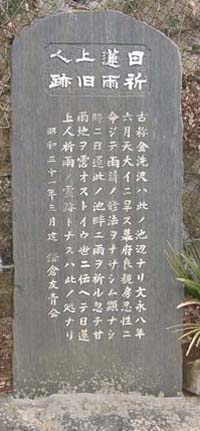 日蓮上人
祈雨旧跡
古称金洗沢ハ此ノ池辺ナリ文永八年
六月天大イニ旱ス幕府良観房忍性ニ
命ジテ雨請ノ修法ヲナサシム験ナシ
時ニ日蓮此ノ池畔ニ雨ヲ祈ル忽チ甘
雨地ヲ霑オストイウ世ニ伝ヘテ日蓮
上人祈雨ノ霊跡トナスハ此ノ処ナリ
昭和三十一年三月建 鎌倉友青会